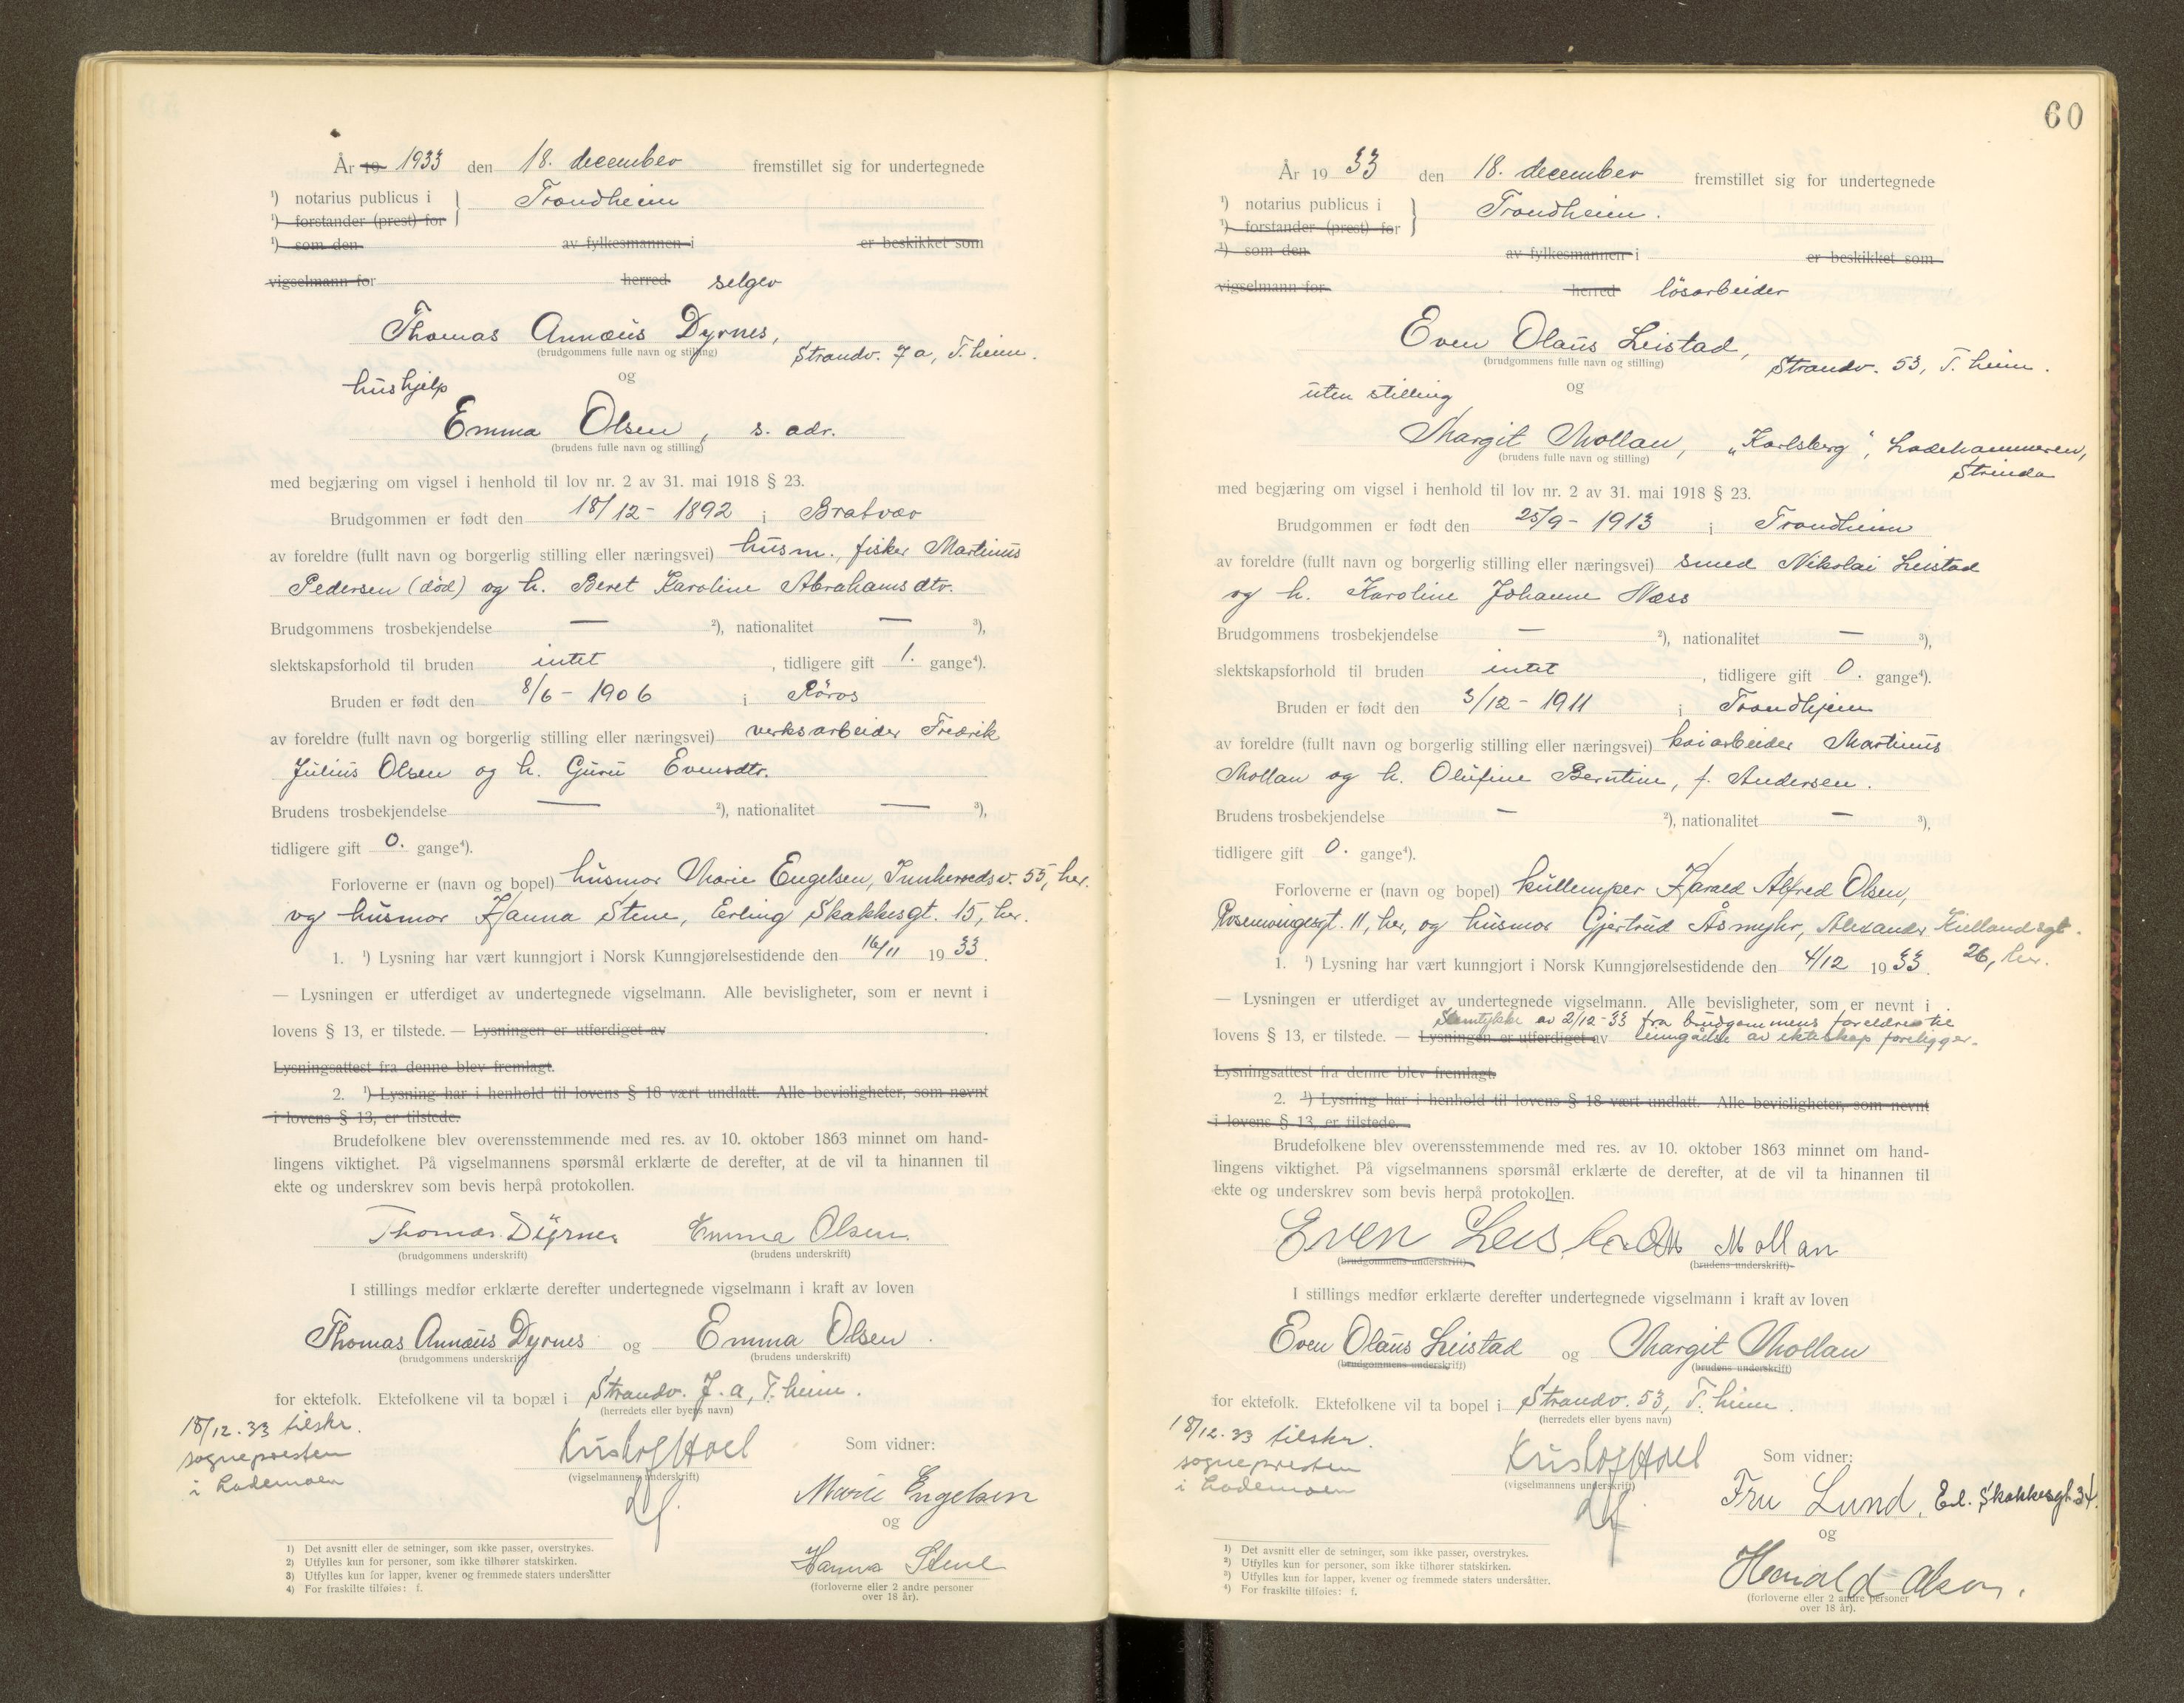 År 19 1933 den 18. december fremstillet sig for undertegnede
¹) notarius publicus i } Trondheim
¹) forstander (prest) for
¹) som den av fylkesmannen i er beskikket som
vigselmann for herred selger
Thomas Annæus Dyrnes,
(brudgommens fulle navn og stilling) Strandv. 7a, T.heim.
og
hushjelp
Emma Olsen, s. adr.
(brudens fulle navn og stilling)
med begjæring om vigsel i henhold til lov nr. 2 av 31. mai 1918 § 23.
Brudgommen er født den 18/12 - 1892 i Bratvær
av foreldre (fullt navn og borgerlig stilling eller næringsvei) husm., fisker Martinus
Pedersen (död) og h. Beret Karoline Abrahamsdtr.
Brudgommens trosbekjendelse — ²), nationalitet — ³),
slektskapsforhold til bruden intet, tidligere gift 1. gange⁴).
Bruden er født den 8/6 - 1906 i Röros
av foreldre (fullt navn og borgerlig stilling eller næringsvei) verksarbeider Fredrik
Julius Olsen og h. Guru Evensdtr.
Brudens trosbekjendelse — ²), nationalitet — ³),
tidligere gift 0. gange⁴).
Forloverne er (navn og bopel) husmor Marie Engelsen, Innherredsv. 55, her.
og husmor Hanna Stene, Erling Skakkesgt. 15, her.
1. ¹) Lysning har vært kunngjort i Norsk Kunngjørelsestidende den 16/11 19 33.
— Lysningen er utferdiget av undertegnede vigselmann. Alle bevisligheter, som er nevnt i
lovens § 13, er tilstede. — Lysningen er utferdiget av .
Lysningsattest fra denne blev fremlagt.
2. ¹) Lysning har i henhold til lovens § 18 vært undlatt. Alle bevisligheter, som nevnt
i lovens § 13, er tilstede.
Brudefolkene blev overensstemmende med res. av 10. oktober 1863 minnet om hand-
lingens viktighet. På vigselmannens spørsmål erklærte de derefter, at de vil ta hinannen til
ekte og underskrev som bevis herpå protokollen.
Thomas Dyrnes Emma Olsen.
(brudgommens underskrift) (brudens underskrift)
I stillings medfør erklærte derefter undertegnede vigselmann i kraft av loven
Thomas Annæus Dyrnes og Emma Olsen.
(brudgommens underskrift) (brudens underskrift)
for ektefolk. Ektefolkene vil ta bopæl i Strandv. 7.a, T.heim.
(herredets eller byens navn)
18/12.33 tilskr.
sognepresten
i Lademoen
Kristof Hoel
(vigselmannens underskrift)
Som vidner:
Marie Engelsen
og
Hanna Stene
(forloverne eller 2 andre personer
over 18 år).
1) Det avsnitt eller de setninger, som ikke passer, overstrykes.
2) Utfylles kun for personer, som ikke tilhører statskirken.
3) Utfylles kun for lapper, kvener og fremmede staters undersåtter
4) For fraskilte tilføies: f.
60
År 19 33 den 18. december fremstillet sig for undertegnede
¹) notarius publicus i } Trondheim.
¹) forstander (prest) for
¹) som den av fylkesmannen i er beskikket som
vigselmann for herred lösarbeider
Even Olaus Leistad,
(brudgommens fulle navn og stilling) Strandv. 53, T.heim.
og
uten stilling
Margit Mollan, „Karlsberg", Ladehammeren,
(brudens fulle navn og stilling) Strinda
med begjæring om vigsel i henhold til lov nr. 2 av 31. mai 1918 § 23.
Brudgommen er født den 25/9 - 1913 i Trondheim
av foreldre (fullt navn og borgerlig stilling eller næringsvei) smed Nikolai Leistad
og h. Karoline Johanne Næss
Brudgommens trosbekjendelse — ²), nationalitet — ³),
slektskapsforhold til bruden intet, tidligere gift 0. gange⁴).
Bruden er født den 3/12 - 1911 i Trondhjem
av foreldre (fullt navn og borgerlig stilling eller næringsvei) kaiarbeider Martinus
Mollan og h. Olufine Berntine, f. Andersen.
Brudens trosbekjendelse — ²), nationalitet — ³),
tidligere gift 0. gange⁴).
Forloverne er (navn og bopel) kullemper Harald Alfred Olsen,
Rosenvingesgt. 11, her, og husmor Gjertrud Åsmyhr, Alexander Kiellandsgt.
26, her.
1. ¹) Lysning har vært kunngjort i Norsk Kunngjørelsestidende den 4/12 19 33.
— Lysningen er utferdiget av undertegnede vigselmann. Alle bevisligheter, som er nevnt i
Samtykke av 2/12-33 fra brudgommens foreldre til
lovens § 13, er tilstede. — Lysningen er utferdiget av inngåelse av ekteskap foreligger.
Lysningsattest fra denne blev fremlagt.
2. ¹) Lysning har i henhold til lovens § 18 vært undlatt. Alle bevisligheter, som nevnt
i lovens § 13, er tilstede.
Brudefolkene blev overensstemmende med res. av 10. oktober 1863 minnet om hand-
lingens viktighet. På vigselmannens spørsmål erklærte de derefter, at de vil ta hinannen til
ekte og underskrev som bevis herpå protokollen.
Even Leistad M Mollan
(brudgommens underskrift) (brudens underskrift)
I stillings medfør erklærte derefter undertegnede vigselmann i kraft av loven
Even Olaus Leistad og Margit Mollan
(brudgommens underskrift) (brudens underskrift)
for ektefolk. Ektefolkene vil ta bopel i Strandv. 53, T.heim.
(herredets eller byens navn)
18/12.33 tilskr.
sognepresten
i Lademoen
Kristof Hoel
(vigselmannens underskrift)
Som vidner:
Fru Lund, Erl. Skakkesgt. 34.
og
Harald Olsen.
(forloverne eller 2 andre personer
over 18 år).
1) Det avsnitt eller de setninger, som ikke passer, overstrykes.
2) Utfylles kun for personer, som ikke tilhører statskirken.
3) Utfylles kun for lapper, kvener og fremmede staters undersåtter.
4) For fraskilte tilføies: f.